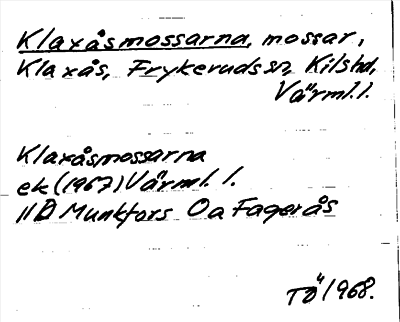 Klaxåsmossarna, mossar,
Klaxås, Frykeruds sn, Kils hd,
Värml. l.
Klaxåsmossarna
ek (1967) Värml. l.
11D Munkfors Oa Fagerås
TÖ 1968.